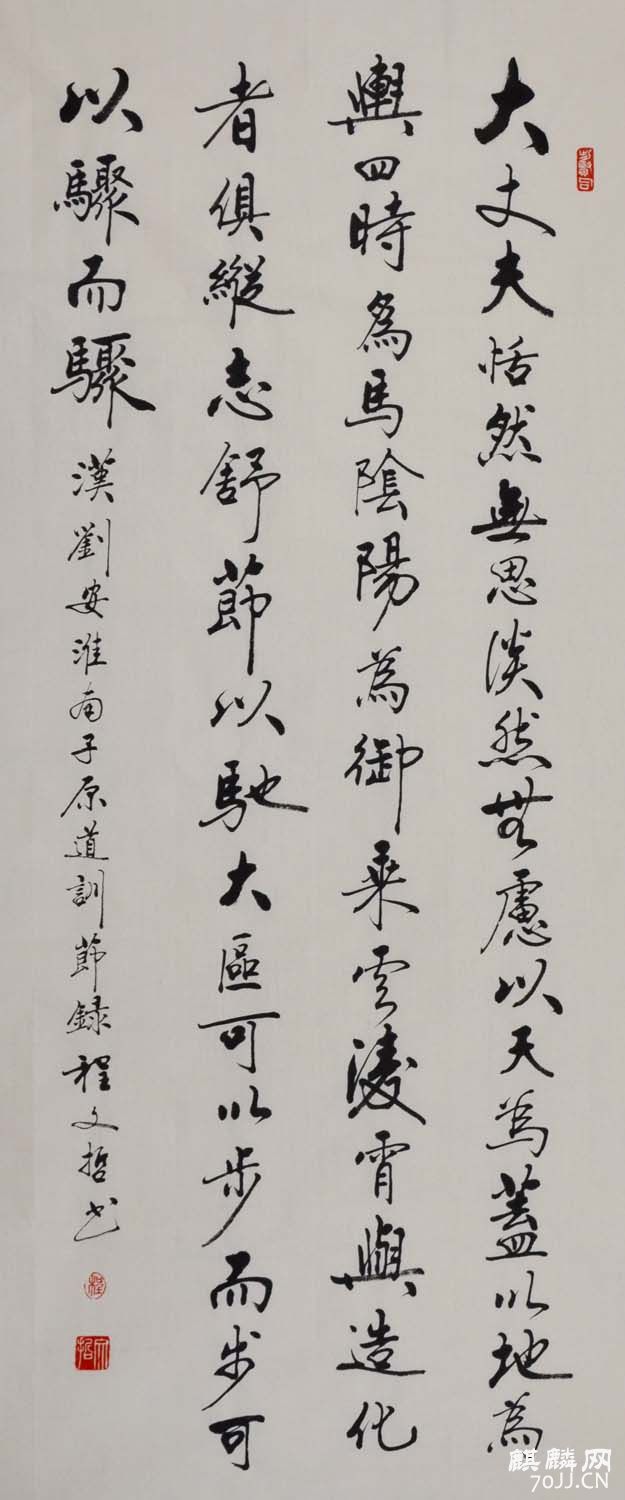 大丈夫恬然無思淡然無慮以天為蓋以地為
輿四時為馬陰陽為御乘雲淩霄與造化
者俱縱志舒節以馳大區可以步而步可
以驟而驟
漢劉安淮南子原道訓節録程文哲书
麒麟网
70JJ.CN